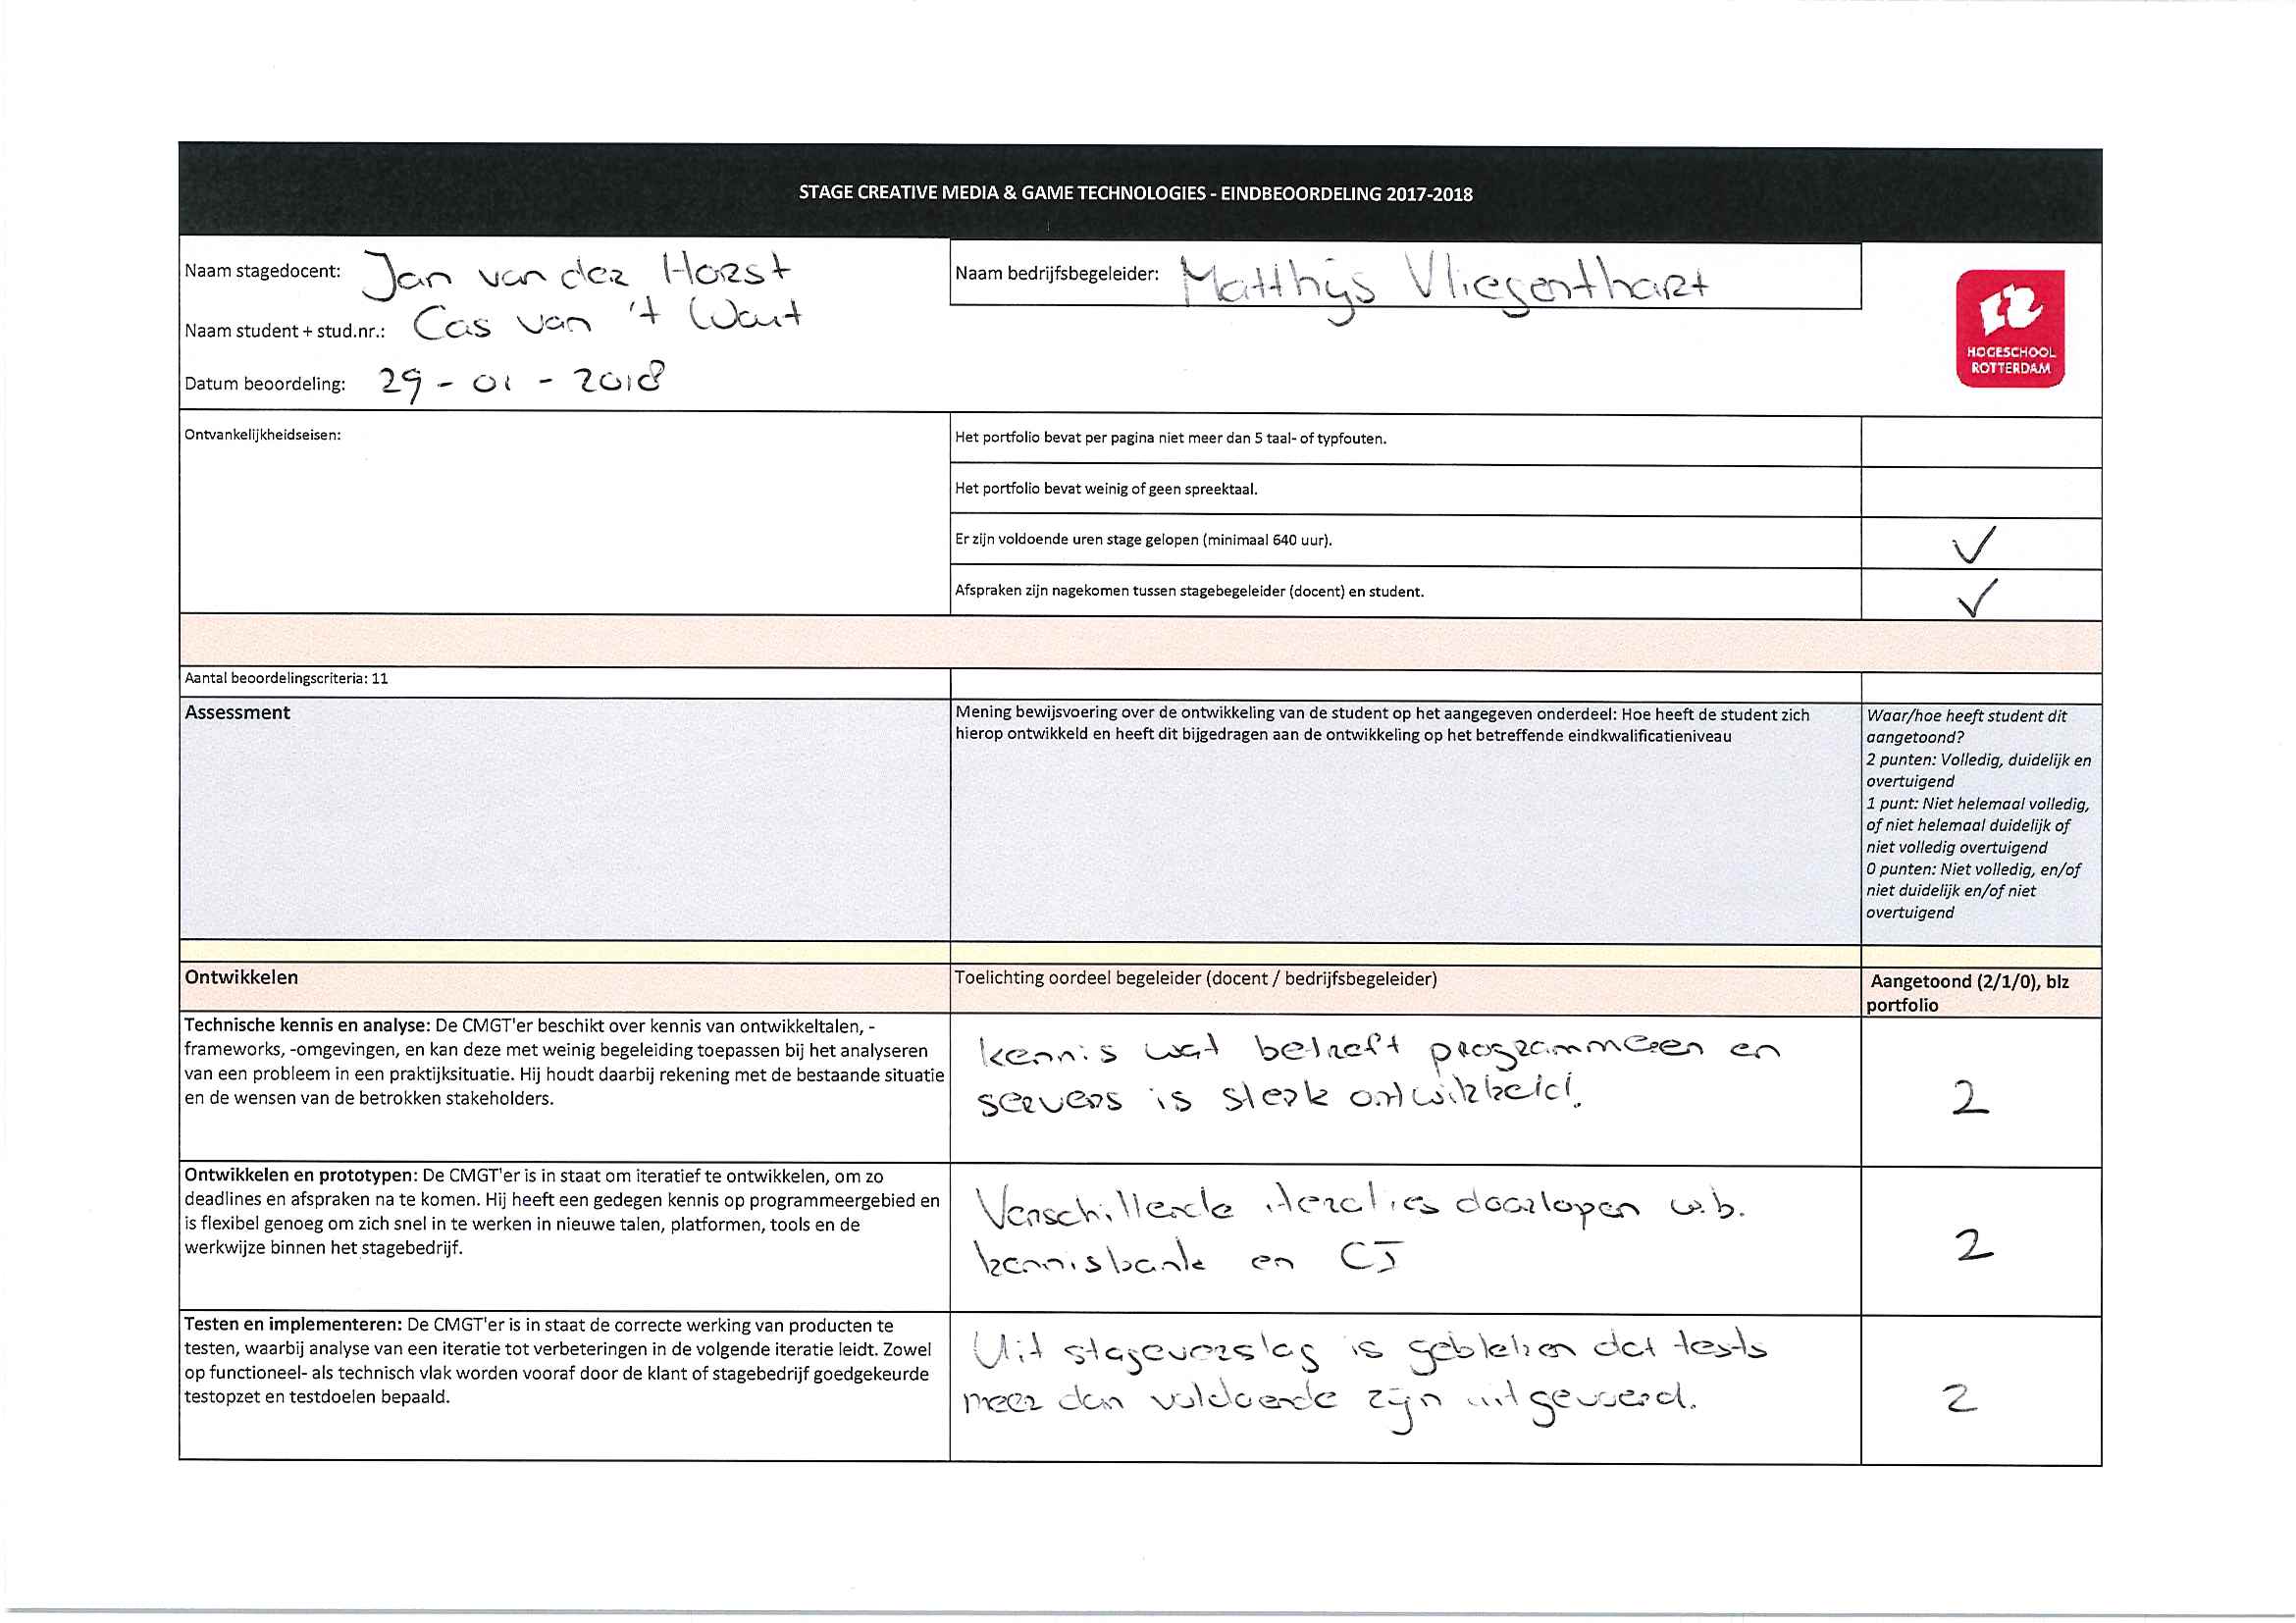 STAGE CREATIVE MEDIA & GAME TECHNOLOGIES - EINDBEOORDELING 2017-2018
Naam stagedocent: Jan van der Horst
Naam bedrijfsbegeleider: Matthijs Vliegenthart
Naam student + stud.nr.: Cas van 't Wout
Datum beoordeling: 29-01-2018
HOGESCHOOL
ROTTERDAM
Ontvankelijkheidseisen:
Het portfolio bevat per pagina niet meer dan 5 taal- of typfouten.
Het portfolio bevat weinig of geen spreektaal.
Er zijn voldoende uren stage gelopen (minimaal 640 uur). ✓
Afspraken zijn nagekomen tussen stagebegeleider (docent) en student. ✓
Aantal beoordelingscriteria: 11
Assessment
Mening bewijsvoering over de ontwikkeling van de student op het aangegeven onderdeel: Hoe heeft de student zich
hierop ontwikkeld en heeft dit bijgedragen aan de ontwikkeling op het betreffende eindkwalificatieniveau
Waar/hoe heeft student dit
aangetoond?
2 punten: Volledig, duidelijk en
overtuigend
1 punt: Niet helemaal volledig,
of niet helemaal duidelijk of
niet volledig overtuigend
0 punten: Niet volledig, en/of
niet duidelijk en/of niet
overtuigend
Ontwikkelen
Toelichting oordeel begeleider (docent / bedrijfsbegeleider)
Aangetoond (2/1/0), blz
portfolio
Technische kennis en analyse: De CMGT'er beschikt over kennis van ontwikkeltalen, -
frameworks, -omgevingen, en kan deze met weinig begeleiding toepassen bij het analyseren
van een probleem in een praktijksituatie. Hij houdt daarbij rekening met de bestaande situatie
en de wensen van de betrokken stakeholders.
kennis wat betreft programmeren en
servers is sterk ontwikkeld.
2
Ontwikkelen en prototypen: De CMGT'er is in staat om iteratief te ontwikkelen, om zo
deadlines en afspraken na te komen. Hij heeft een gedegen kennis op programmeergebied en
is flexibel genoeg om zich snel in te werken in nieuwe talen, platformen, tools en de
werkwijze binnen het stagebedrijf.
Verschillende iteraties doorlopen w.b.
kennisbank en CJ
2
Testen en implementeren: De CMGT'er is in staat de correcte werking van producten te
testen, waarbij analyse van een iteratie tot verbeteringen in de volgende iteratie leidt. Zowel
op functioneel- als technisch vlak worden vooraf door de klant of stagebedrijf goedgekeurde
testopzet en testdoelen bepaald.
Uit stageverslag is gebleken dat tests
meer dan voldoende zijn uitgevoerd.
2